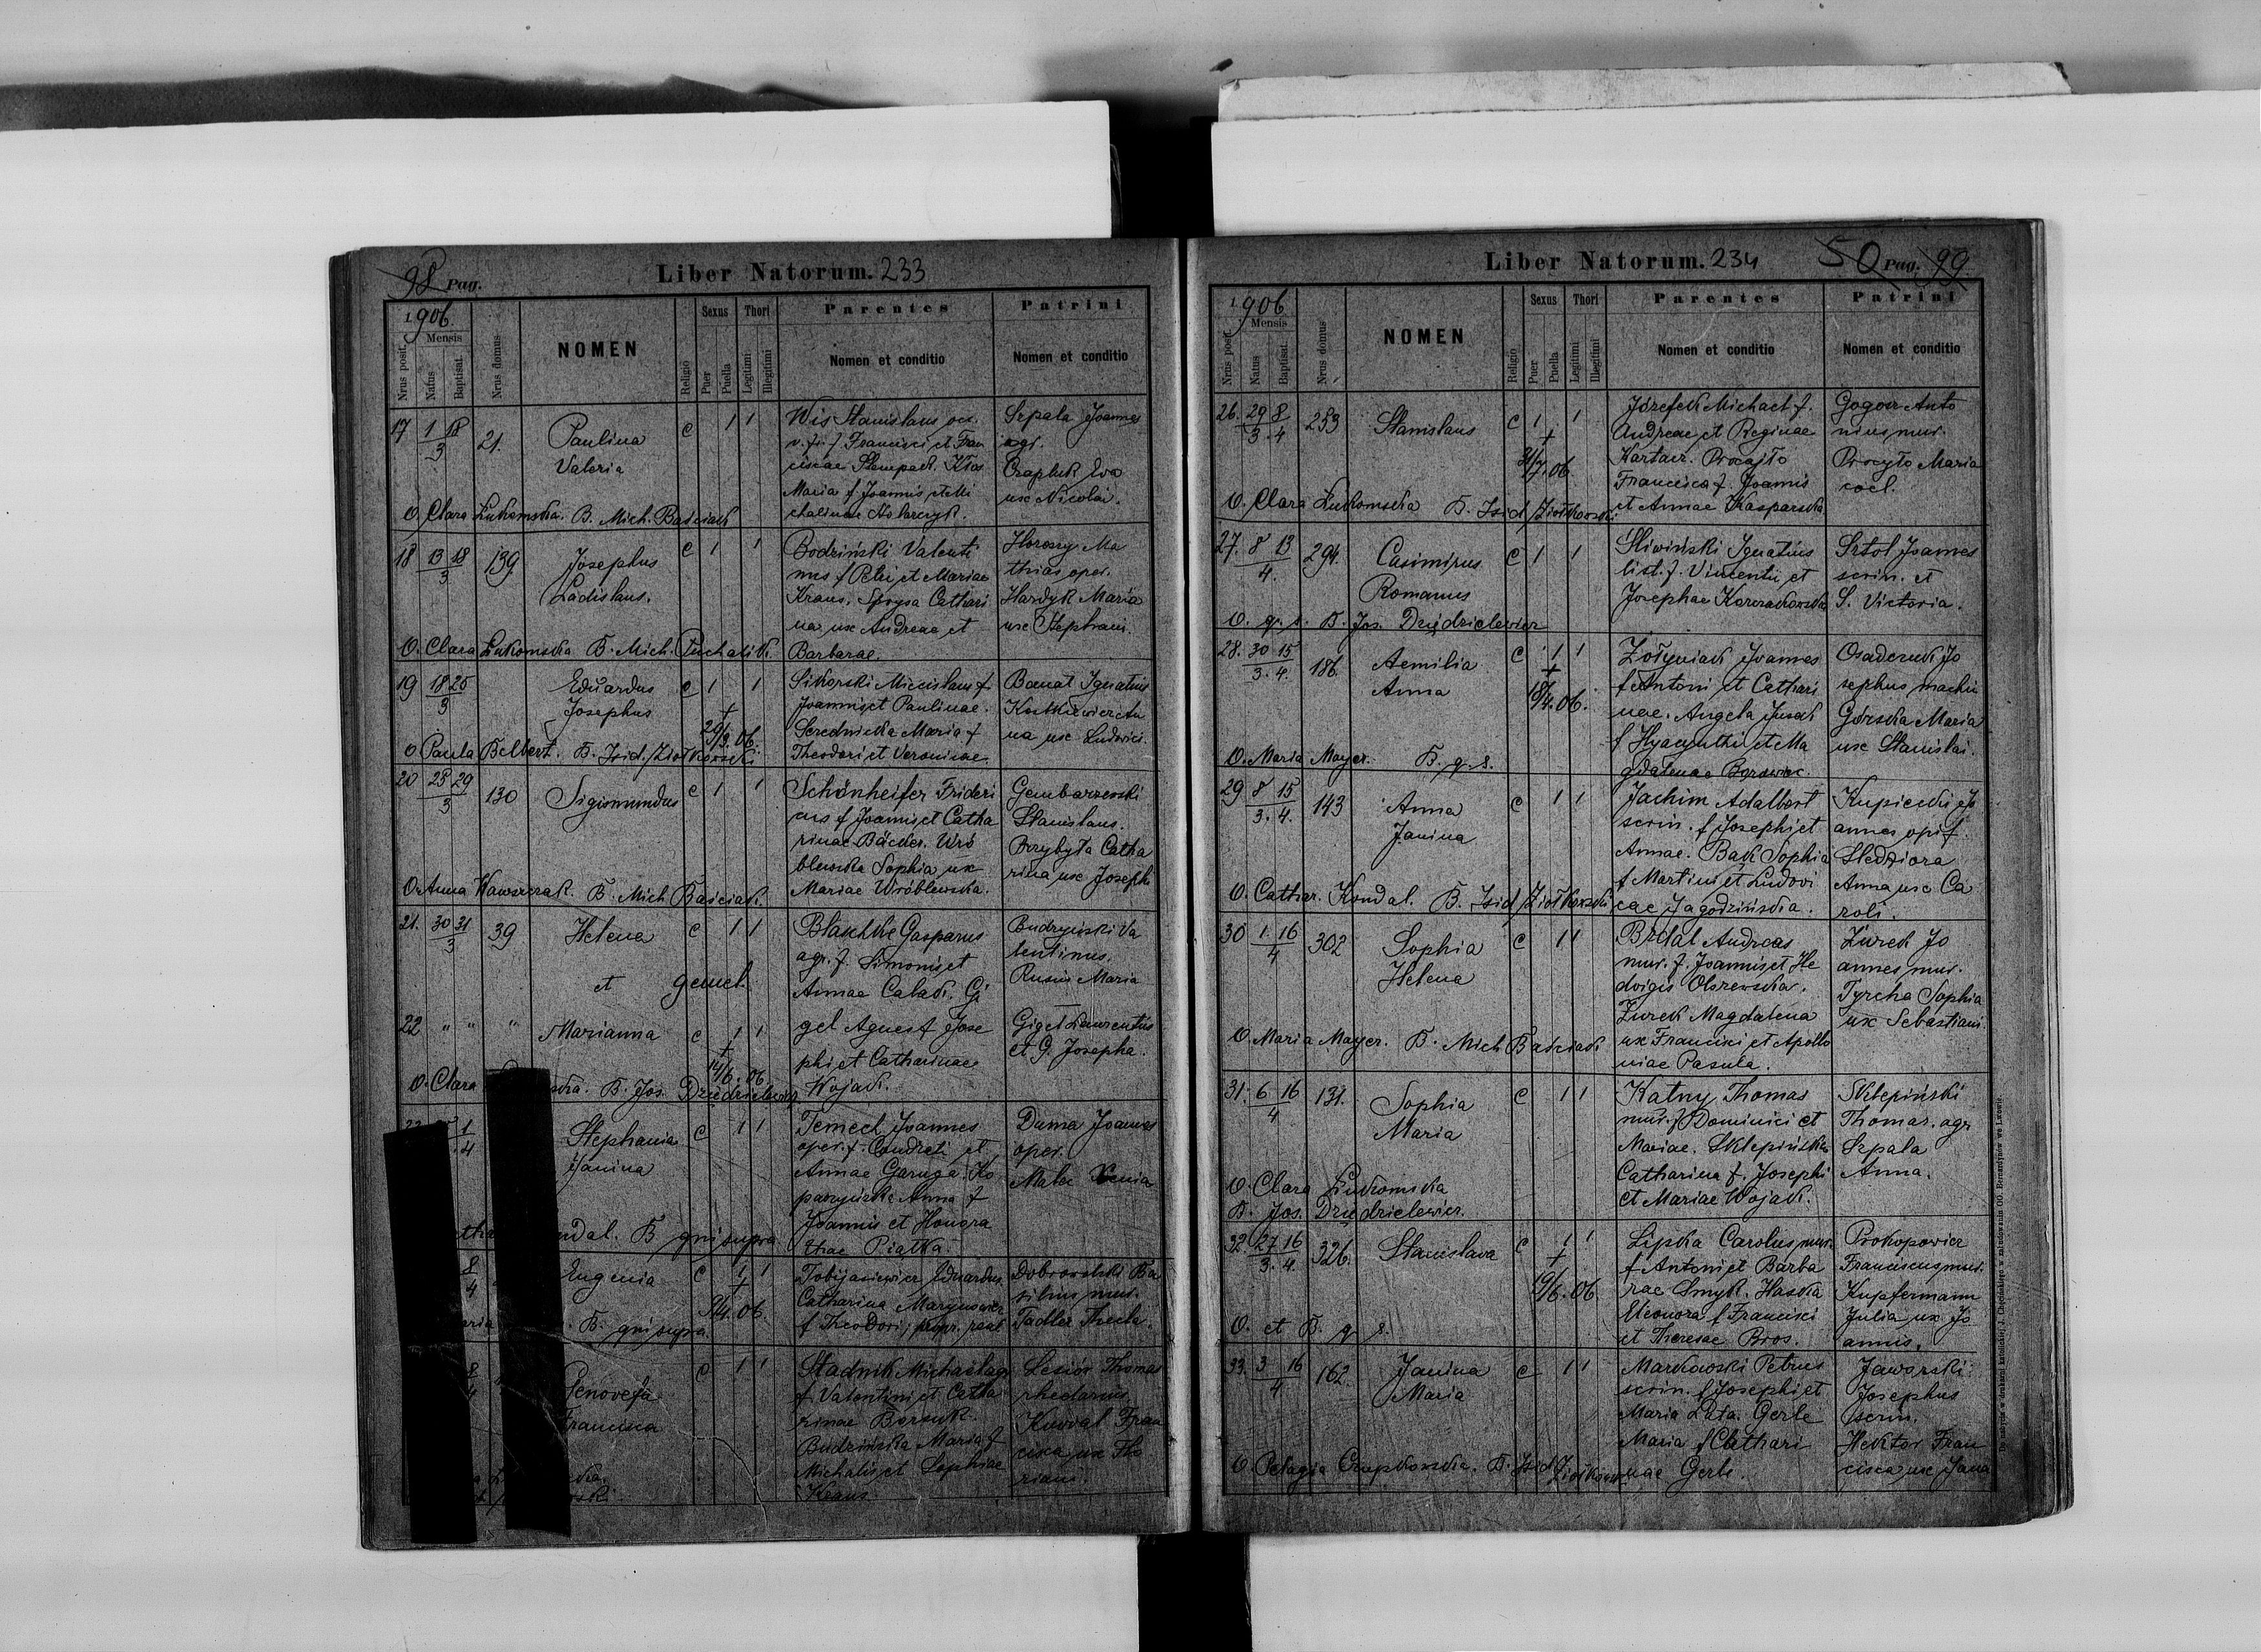 98 Pag.
Liber Natorum. 233
1906
Nrus posit.
Mensis
Natus
Baptisat.
Nrus domus
NOMEN
Religio
Sexus
Puer
Puella
Thori
Legitimi
Illegitimi
Parentes
Nomen et conditio
Patrini
Nomen et conditio
17 1/3 18 21. Paulina Valeria c 1 1
Wis Stanislaus
f. Francisci et Fran
ciscae Slempack. Kłos
Maria f. Joannis et Mi
chalinae
Szpala Joannes
agr.
Czapluk Eva
ux Nicolai.
O. Clara Lukomska. B. Mich. Baściak
18 13 18/3 139. Josephus Ladislaus. c 1 1
Bodziński Valenti
nus f Petri et Mariae
Kraus. Sprysa Cathari
na ux Andreae et
Barbarae.
Horoszy Ma
thias oper.
Hardyk Maria
ux Stephani.
O. Clara Lukomska B. Mich. Puchalik
19 18 25/3 Eduardus Josephus c 1 1
+ 29/3.06.
Sikorski Miecislaus f
Joannis et Paulinae.
Serednicka Maria f
Theodori et Veronicae
Banat Ignatius
Kutkiewicz An
na ux Ludovici.
O Paula Belbert. B. Isid. Ziołkowski
20 25 29/3 130 Sigismundus c 1 1
Schönheifer Frideri
cus f Joannis et Catha
rinae Bäcker. Wró
blewska Sophia ux
Mariae Wróblewska.
Gembarzewski
Stanislaus.
Przybyła Catha
rina ux Josephi
O. Anna Wawszczak. B. Mich Baściak.
21. 30 31/3 39 Helena c 1 1
et gemel.
Blaschke Gasparus
agr. f. Simonis et
Annae Cabak. Gi
gel Agnes f Jose
phi et Catharinae
Wojak.
Budzyński Va
lentinus.
Rusin Maria
22 " " " Marianna c 1 1
+ 14/6.06
Gigel Laurentius
et G. Josepha.
O. Clara B. Jos. Dziędzielewicz
Stephania Janina c 1 1
Temech Joannes
oper. f. Condrati et
Annae Garuga. Ko
paczyńska Anna f
Joannis et Honora
thae Piatka
Duma Joannes
oper.
Malec Xenia
B. qui supra
8/4 Eugenia c 1 1
+ 9/4.06
Tobijasiewicz Eduardus
Catharina Marynowicz
f Theodori, propr. real
Dobrowolski Ba
silius mur.
Tadler Thecla.
B. qui supra
8/4 Genovefa Francisca c 1 1
Stadnik Michael agr
f. Valentini et Catha
rinae Borsuk.
Budzińska Maria f
Michalis et Sophiae
Kraus
Lesior Thomas
rhedarius
Kuwal Fran
cisca ux Flo
riani.
Liber Natorum. 234
50 Pag. 99
1906
Nrus posit.
Mensis
Natus
Baptisat.
Nrus domus
NOMEN
Religio
Sexus
Puer
Puella
Thori
Legitimi
Illegitimi
Parentes
Nomen et conditio
Patrini
Nomen et conditio
26. 29 8/3. 4 253 Stanislaus c 1 1
+ 31/7.06
Józefek Michael f.
Andreae et Reginae
Procajło
Francisca f. Joannis
et Annae Kasparska
Gogosz Anto
nius mur.
Procyło Maria
coel.
O. Clara Lukomska B. Isid. Ziołkowski
27. 8 13/4. 294. Casimirus Romanus c 1 1
Sliwiński Ignatius
list. f. Vincentii et
Josephae Karczakowska
Sztol Joannes
scrin. et
S. Victoria.
O. q. s. B. Jos. Dziędzielewicz
28. 30 15/3. 4. 186. Aemilia Anna c 1 1
+ 18/4.06.
Zołyniak Joannes
f Antoni et Cathari
nae. Angela Jusak
f Hyacynthi et Ma
gdalenae Borowiec.
Osadczuk Jo
sephus machin
Górska Maria
ux Stanislai.
O. Maria Mayer. B. q. s.
29 8 15/3. 4. 143 Anna Janina c 1 1
Jachim Adalbert
scrin. f Josephi et
Annae. Bąk Sophia
f Martini et Ludovi
cae Jagodzińska.
Kupiecki Jo
annes opif.
Śledziora
Anna ux Ca
roli.
O. Cathar. Kondal. B. Isid. Ziołkowski
30 1. 16/4 302 Sophia Helena c 1 1
Bzdal Andreas
mur. f. Joannis et He
dvigis Olszewska.
Żurek Magdalena
ux Francisci et Apollo
niae Pasula.
Żurek Jo
annes mur.
Tyrcha Sophia
ux Sebastiani.
O. Maria Mayer. B. Mich Baściak
31. 6 16/4 131. Sophia Maria c 1 1
Katny Thomas
mur. f Dominici et
Mariae. Sklepińska
Catharina f. Josephi
et Mariae Wojak.
Sklepiński
Thomas. agr
Szpala
Anna.
O. Clara Lukomska
B. Jos. Dziędzielewicz.
32. 27 16/3. 4. 326. Stanislava c 1 1
+ 19/6.06.
Lipka Carolus mur.
f Antoni et Barba
rae Smyk. Haska
Eleonora f Francisci
et Theresae Bros.
Prokopowicz
Franciscus mur.
Kupfermann
Julia ux Jo
annis.
O. et B. q s.
33. 3 16/4 162. Janina Maria c 1 1
Markowski Petrus
scrin. f Josephi et
Maria Lata. Gerle
Maria f Cathari
nae Gerle.
Jaworski
Josephus
scrin.
Hektor Fran
cisca ux Jana
O Pelagia Czupkowska. B. Isid Ziołkowski
Do nabycia w drukarni katolickiej J. Chęcińskiego w zabudowaniu OO. Bernardynów we Lwowie.